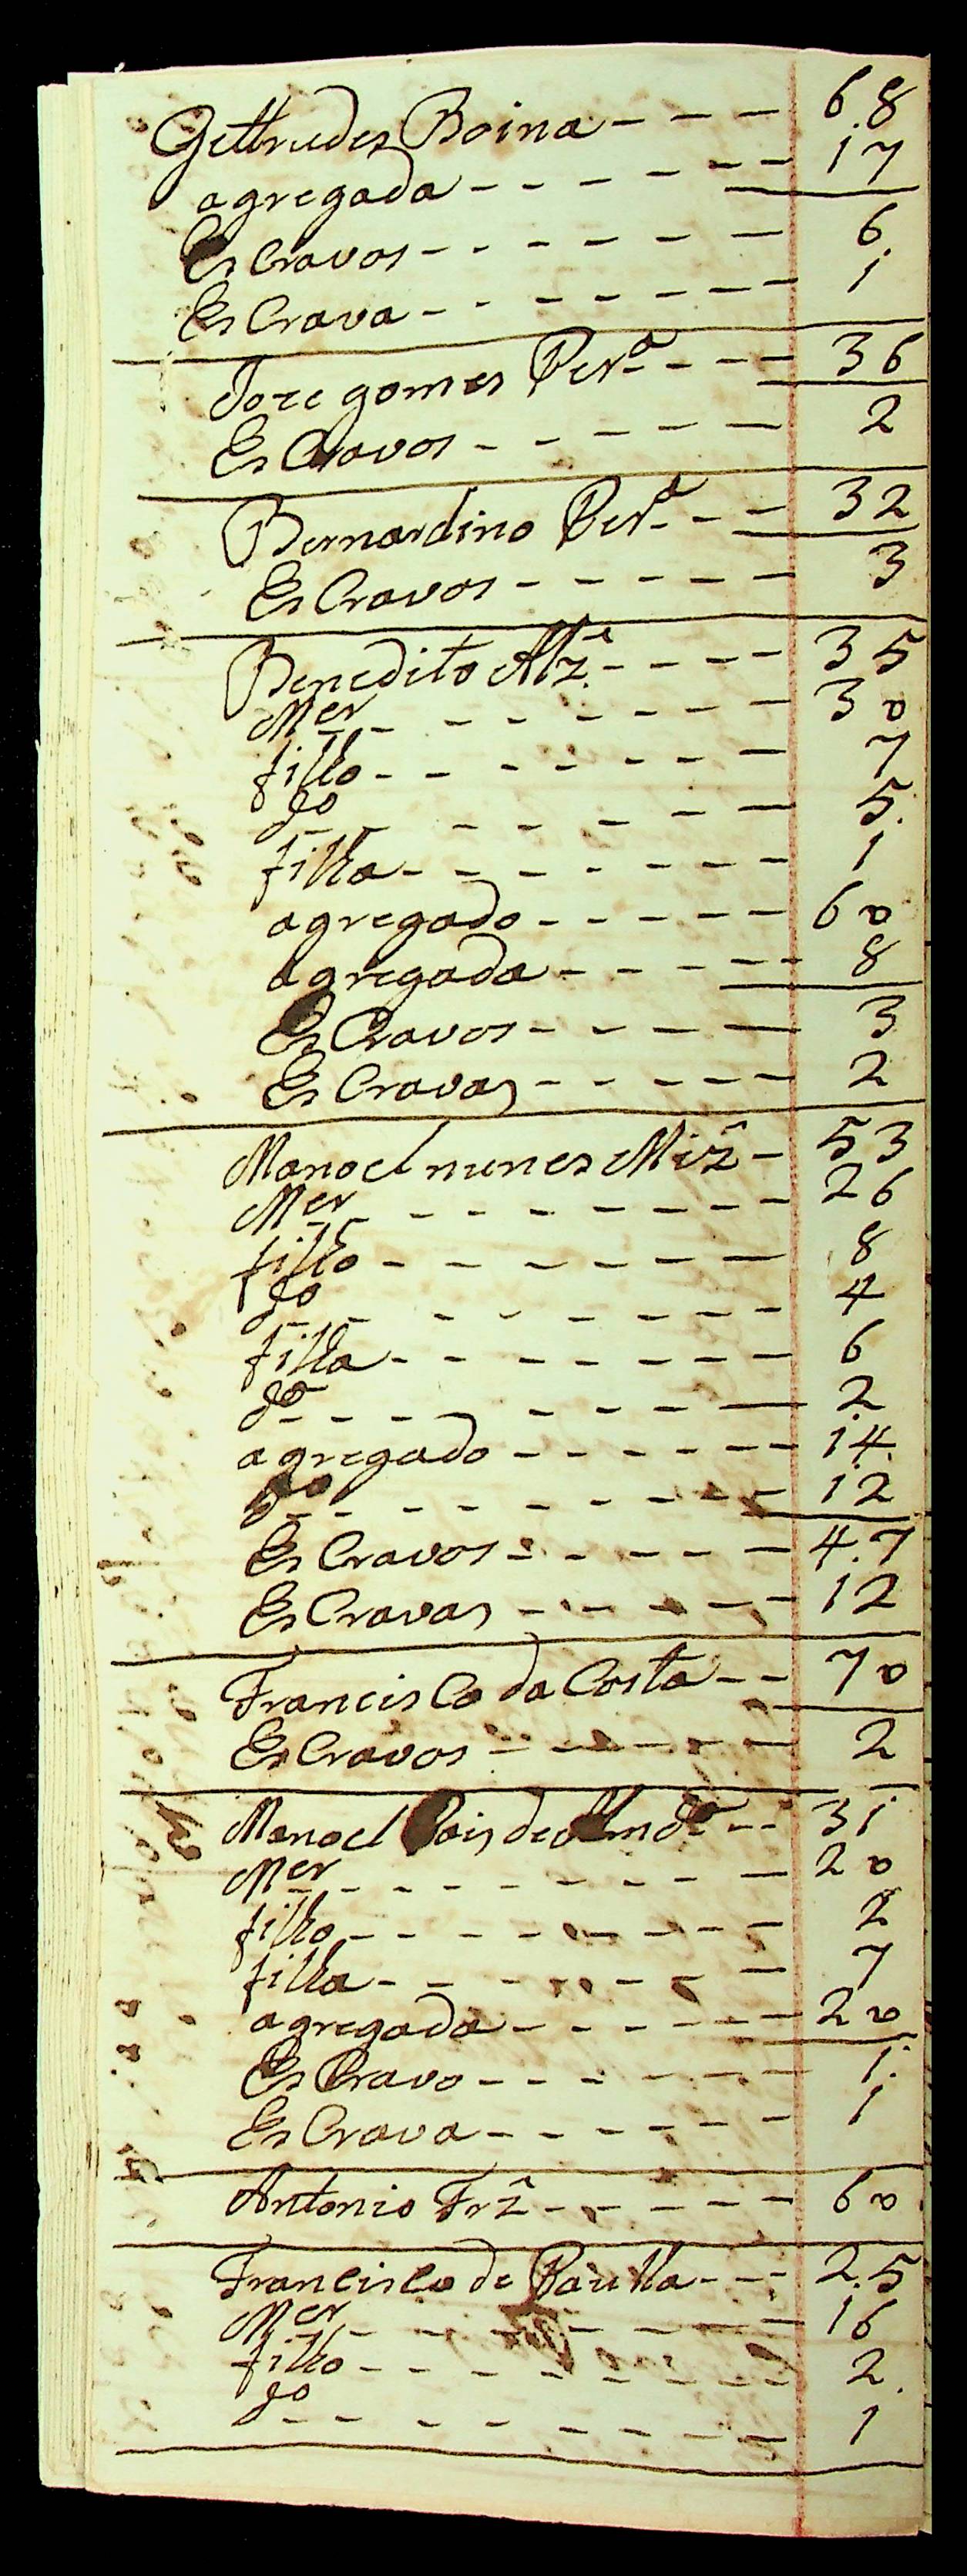 Gettrudes Boina - - - 68
agregada - - - - - - 17
EsCravos - - - - - - 6
EsCrava - - - - - - - 1
Joze gomes Per.ª - - - 36
EsCravos - - - - - 2
Bernardino Per.ª - - 32
EsCravos - - - - - 3
Benedito Alz.ᵉ - - - - 35
Mer - - - - - - - - 30
filho - - - - - - - 7
do - - - - - - - 5
filha - - - - - - - 1
agregado - - - - - 60
agregada - - - - - 8
EsCravos - - - - 3
EsCravas - - - - - 2
Manoel nunes Miz̃ - 53
Mer - - - - - - - - 26
filho - - - - - - 8
do - - - - - - - 4
filha - - - - - - - 6
da - - - - - - - 2
agregado - - - - - - 14
do - - - - - - - - 12
EsCravos - - - - - 47
EsCravas - - - - - 12
FrancisCo da Costa - - 70
EsCravos - - - - - 2
Manoel Pais de Almdª - - 31
Mer - - - - - - - - 20
filho - - - - - - - - 2
filha - - - - - - - 7
agregada - - - - - - 20
EsCravo - - - - - - 1
EsCrava - - - - - - 1
Antonio Frz̃ - - - - - 60
FranCisco de Paulla - - - 25
Mer - - - - - - - 16
filho - - - - - - - - 2
do - - - - - - - - 1